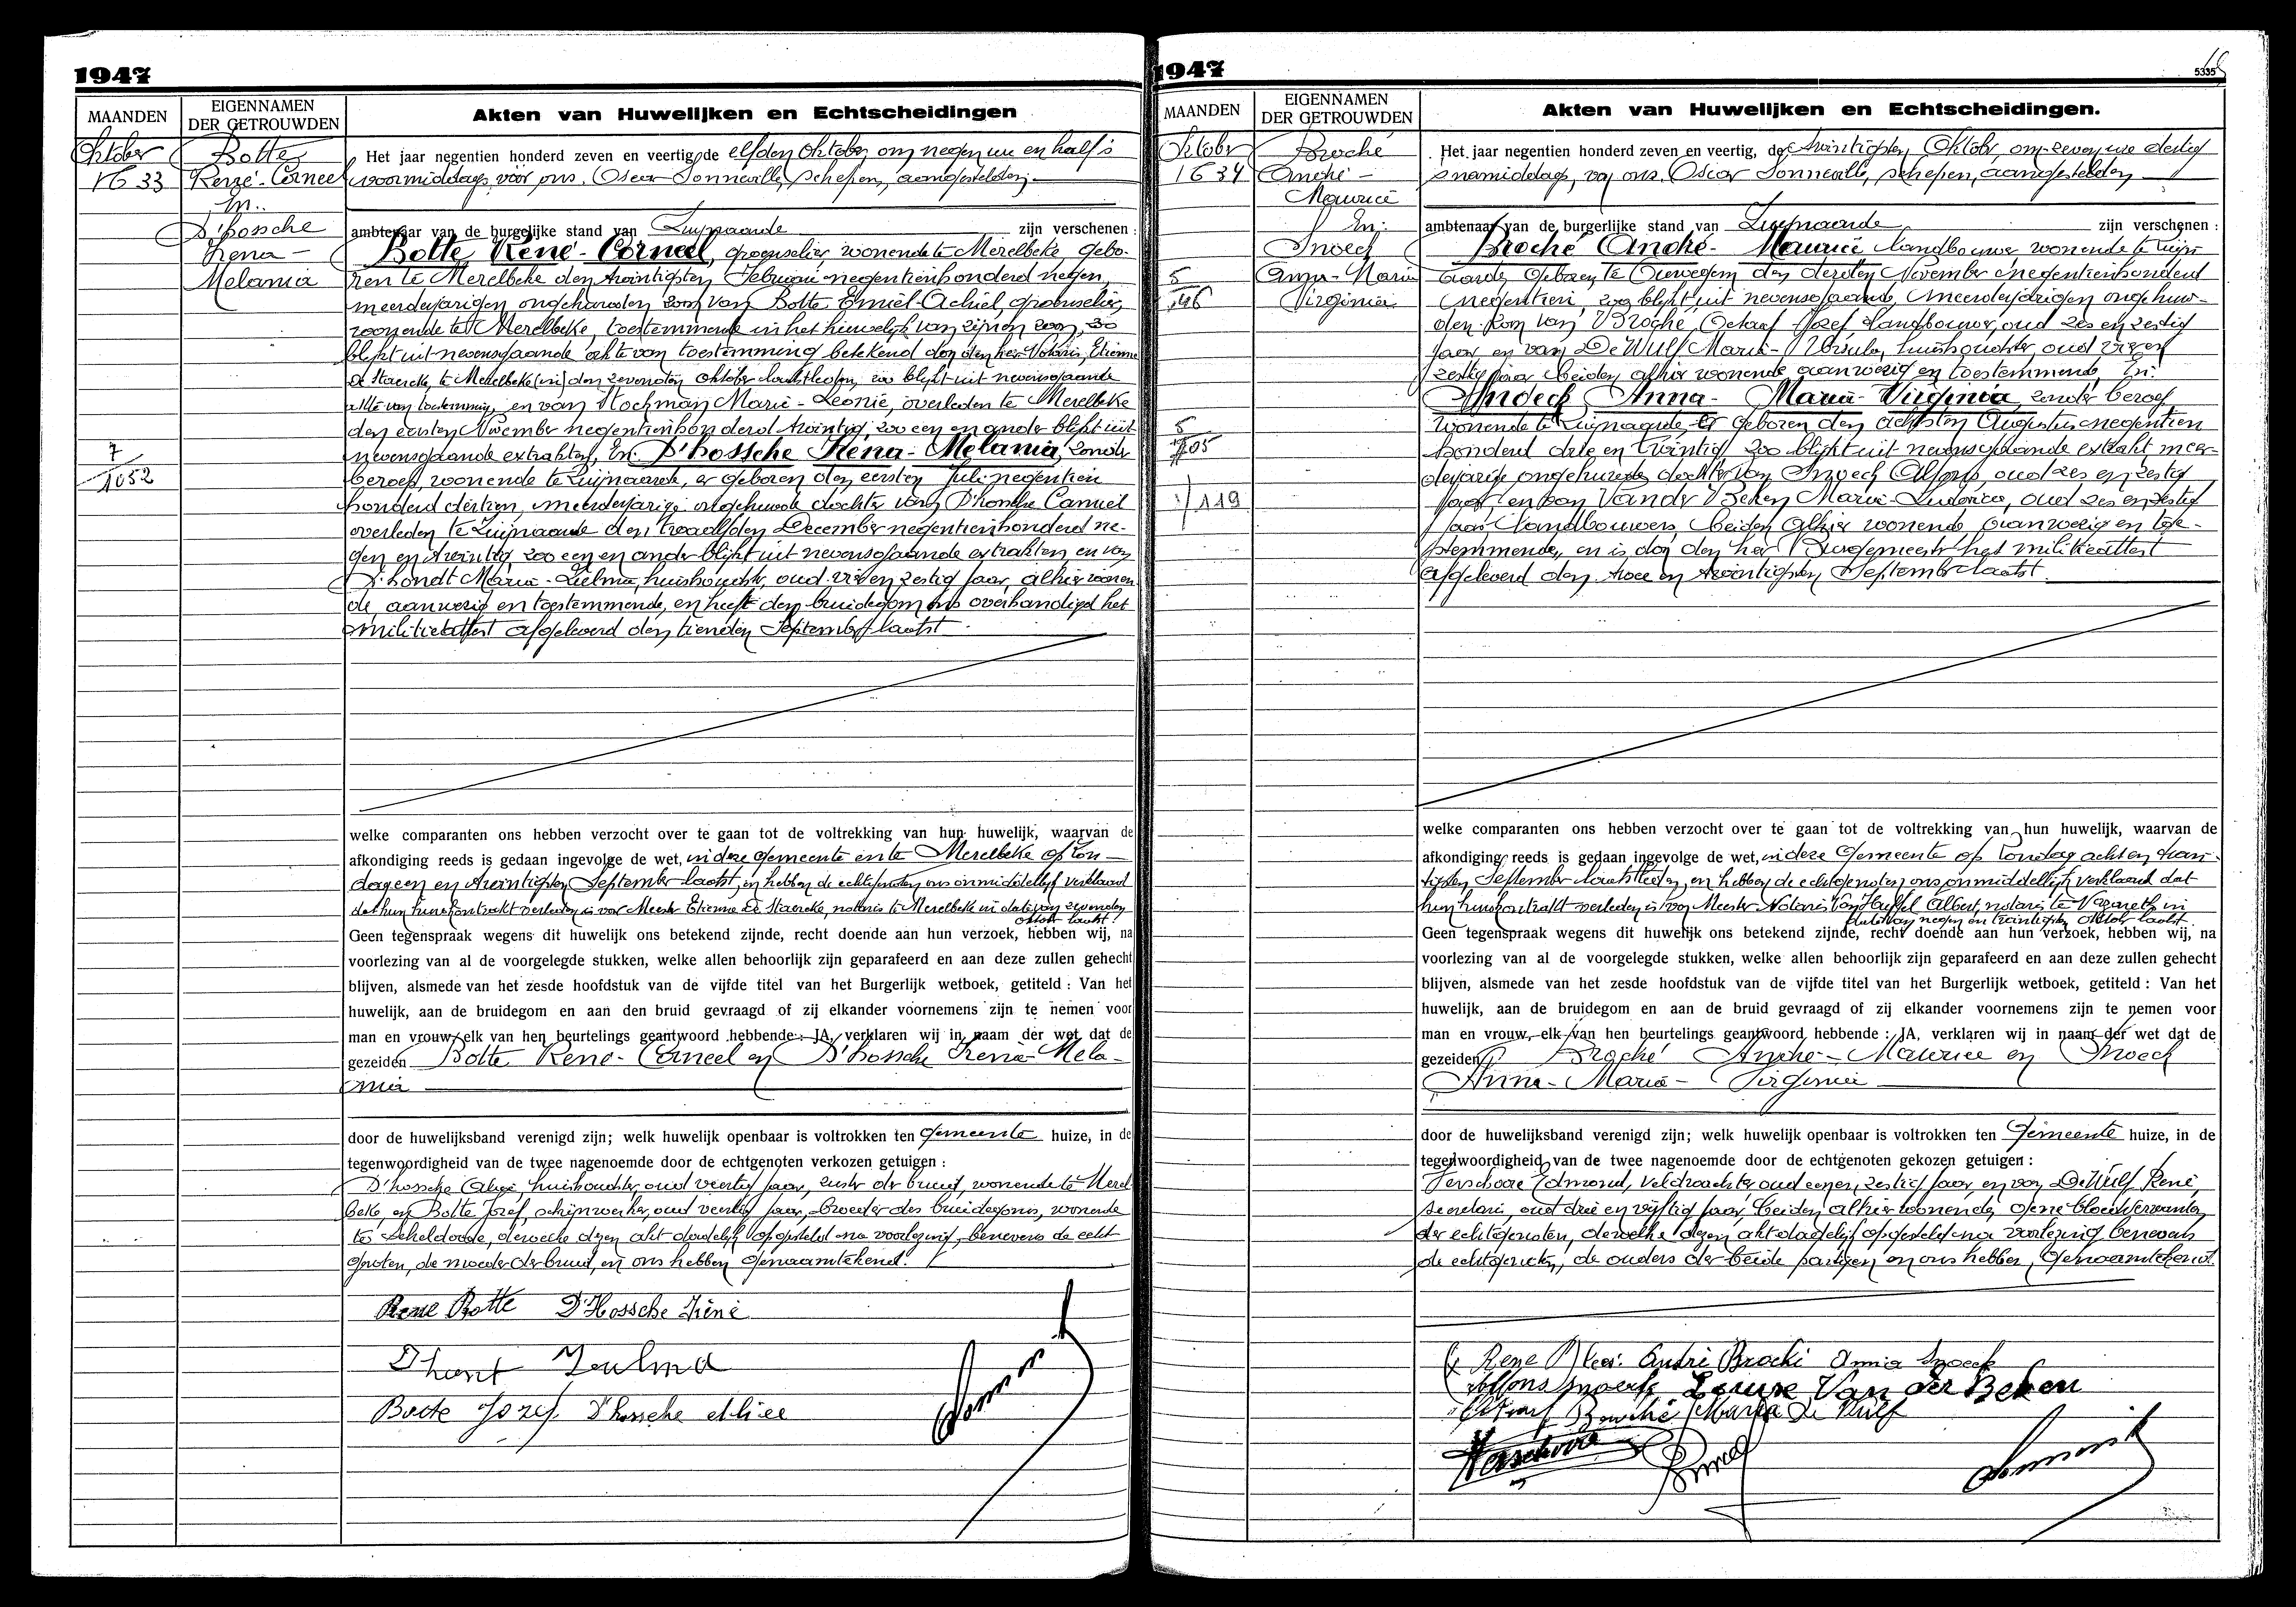 1947
MAANDEN
EIGENNAMEN
DER GETROUWDEN
Akten van Huwelijken en Echtscheidingen
Oktober
N 33
Botte
René-Corneel
En.
D'hossche
Irena-
Melania
7
1052
Het jaar negentien honderd zeven en veertig, de elfden Oktober, om negen ure en half 's
voormiddags, vóór ons, Oscar Sonneville, schepen, aangestelden
ambtenaar van de burgelijke stand van Zwijnaarde zijn verschenen :
Botte René-Corneel, groenselier, wonende te Merelbeke, gebo-
ren te Merelbeke den twintigsten Februari negentienhonderd negen,
meerderjarigen ongehuwden zoon van Botte Emiel Achiel, groenselier,
wonende te Merelbeke, toestemmende in het huwelijk van zijnen zoon, zoo
blijkt uit nevensgaande akte van toestemming betekend door den heer Notaris, Etienne
De Staercke, te Merelbeke den zevenden Oktober laatstleden, zoo blijkt uit nevensgaande
akte van toestemming, en van Hochman Marie-Leonie, overleden te Merelbeke
den eersten November negentienhonderd twintig, zoo een en ander blijkt uit
nevensgaande extrakten, En. D'hossche Irena-Melania, zonder
beroep, wonende te Zwijnaarde, er geboren den eersten Juli negentien
honderd dertien, meerderjarige ongehuwde dochter van D'hossche Camiel
overleden te Zwijnaarde den twaalfden December negentienhonderd ne-
gen en twintig, zoo een en ander blijkt uit nevensgaande extrakten en van
D'hondt Maria-Zulma, huishoudster, oud vier en zestig jaar, alhier wonen-
de, aanwezig en toestemmende, en heeft den bruidegom ons overhandigd het
militieattest afgeleverd den tienden September laatst.
welke comparanten ons hebben verzocht over te gaan tot de voltrekking van hun huwelijk, waarvan de
afkondiging reeds is gedaan ingevolge de wet, in deze Gemeente en te Merelbeke op Zon-
dag een en twintigsten September laatst, en hebben de echtgenoten ons onmiddellijk verklaard
dat hun huwkontrakt verleden is voor Meester Etienne De Staercke, notaris te Merelbeke in datum van zevenden
Oktober laatst.
Geen tegenspraak wegens dit huwelijk ons betekend zijnde, recht doende aan hun verzoek, hebben wij, na
voorlezing van al de voorgelegde stukken, welke allen behoorlijk zijn geparafeerd en aan deze zullen gehecht
blijven, alsmede van het zesde hoofdstuk van de vijfde titel van het Burgerlijk wetboek, getiteld : Van het
huwelijk, aan de bruidegom en aan den bruid gevraagd of zij elkander voornemens zijn te nemen voor
man en vrouw, elk van hen beurtelings geantwoord hebbende : JA, verklaren wij in naam der wet dat de
gezeiden Botte René-Corneel en D'hossche Irena-Mela-
nia
door de huwelijksband verenigd zijn; welk huwelijk openbaar is voltrokken ten Gemeente huize, in de
tegenwoordigheid van de twee nagenoemde door de echtgenoten verkozen getuigen :
D'hossche Alice, huishoudster, oud veertig jaar, zuster der bruid, wonende te Merel-
beke, en Botte Jozef, schijnwerker, oud veertig jaar, broeder des bruidegoms, wonende
te Schelderode, dewelke dezen akt dadelijk opgesteld na voorlezing, benevens de echt-
genoten, de moeder der bruid, en ons hebben genaamtekend.
Rene Botte D'Hossche Iréne
Dhont Zulma
Botte Jozef D'hossche Alice
1947
5335
MAANDEN
EIGENNAMEN
DER GETROUWDEN
Akten van Huwelijken en Echtscheidingen.
Oktober
N 34
Broché
André-
Maurice
En:
Snoeck
Anna-Maria
Virginia
5
146
5
105
119
Het jaar negentien honderd zeven en veertig, de twintigsten Oktober, om zeven ure dertig
's namiddags, voor ons, Oscar Sonneville, schepen, aangestelden
ambtenaar van de burgerlijke stand van Zwijnaarde zijn verschenen :
Broché André-Maurice landbouwer wonende te Zwijn-
aarde, geboren te Ouwegem den derden November negentienhonderd
negentien, zoo blijkt uit nevensgaande, meerderjarigen ongehuw-
den zoon van Broché, Octaaf-Jozef, landbouwer, oud zes en zestig
jaar en van De Wulf Maria-Ursula, huishoudster, oud vier en
zestig jaar beiden alhier wonende aanwezig en toestemmende, En:
Snoeck Anna-Maria-Virginia, zonder beroep
wonende te Zwijnaarde er geboren den achtsten Augustus negentien
honderd drie en twintig, zoo blijkt uit nevensgaande extrakt meer-
derjarige ongehuwde dochter van Snoeck Alfons, oud zes en zestig
jaar, en van Van der Beken Maria-Ludovica, oud zes en zestig
jaar landbouwers, beiden alhier wonende, aanwezig en toe-
stemmende, en is door den heer Burgemeester het militieattest
afgeleverd den twee en twintigsten September laatst.
welke comparanten ons hebben verzocht over te gaan tot de voltrekking van hun huwelijk, waarvan de
afkondiging reeds is gedaan ingevolge de wet, in deze Gemeente op Zondag acht en twin-
tigsten September laatstleden, en hebben de echtgenoten ons onmiddellijk verklaard dat
hun huwkontrakt verleden is voor Meester Notaris Van Hauffel Albert, notaris te Nazareth in
datum van negen en twintigsten Oktober laatst.
Geen tegenspraak wegens dit huwelijk ons betekend zijnde, recht doende aan hun verzoek, hebben wij, na
voorlezing van al de voorgelegde stukken, welke allen behoorlijk zijn geparafeerd en aan deze zullen gehecht
blijven, alsmede van het zesde hoofdstuk van de vijfde titel van het Burgerlijk wetboek, getiteld : Van het
huwelijk, aan de bruidegom en aan de bruid gevraagd of zij elkander voornemens zijn te nemen voor
man en vrouw, elk van hen beurtelings geantwoord hebbende : JA, verklaren wij in naam der wet dat de
gezeiden Broché André-Maurice en Snoeck
Anna-Maria-Virginia
door de huwelijksband verenigd zijn; welk huwelijk openbaar is voltrokken ten Gemeente huize, in de
tegenwoordigheid van de twee nagenoemde door de echtgenoten gekozen getuigen :
Verschoore Edmond, veldwachter oud een en zestig jaar, en van De Wulf René,
secretaris, oud drie en vijftig jaar, beiden alhier wonende, gene bloedverwanten
der echtgenoten, dewelke dezen akt dadelijk opgesteld na voorlezing benevens
de echtgenoten, de ouders der beide partijen en ons hebben, genaamtekend.
André Broché Anna Snoeck
Alfons Snoeck Louise Van der Beken
Octaaf Broché Maria De Wulf
Verschoore